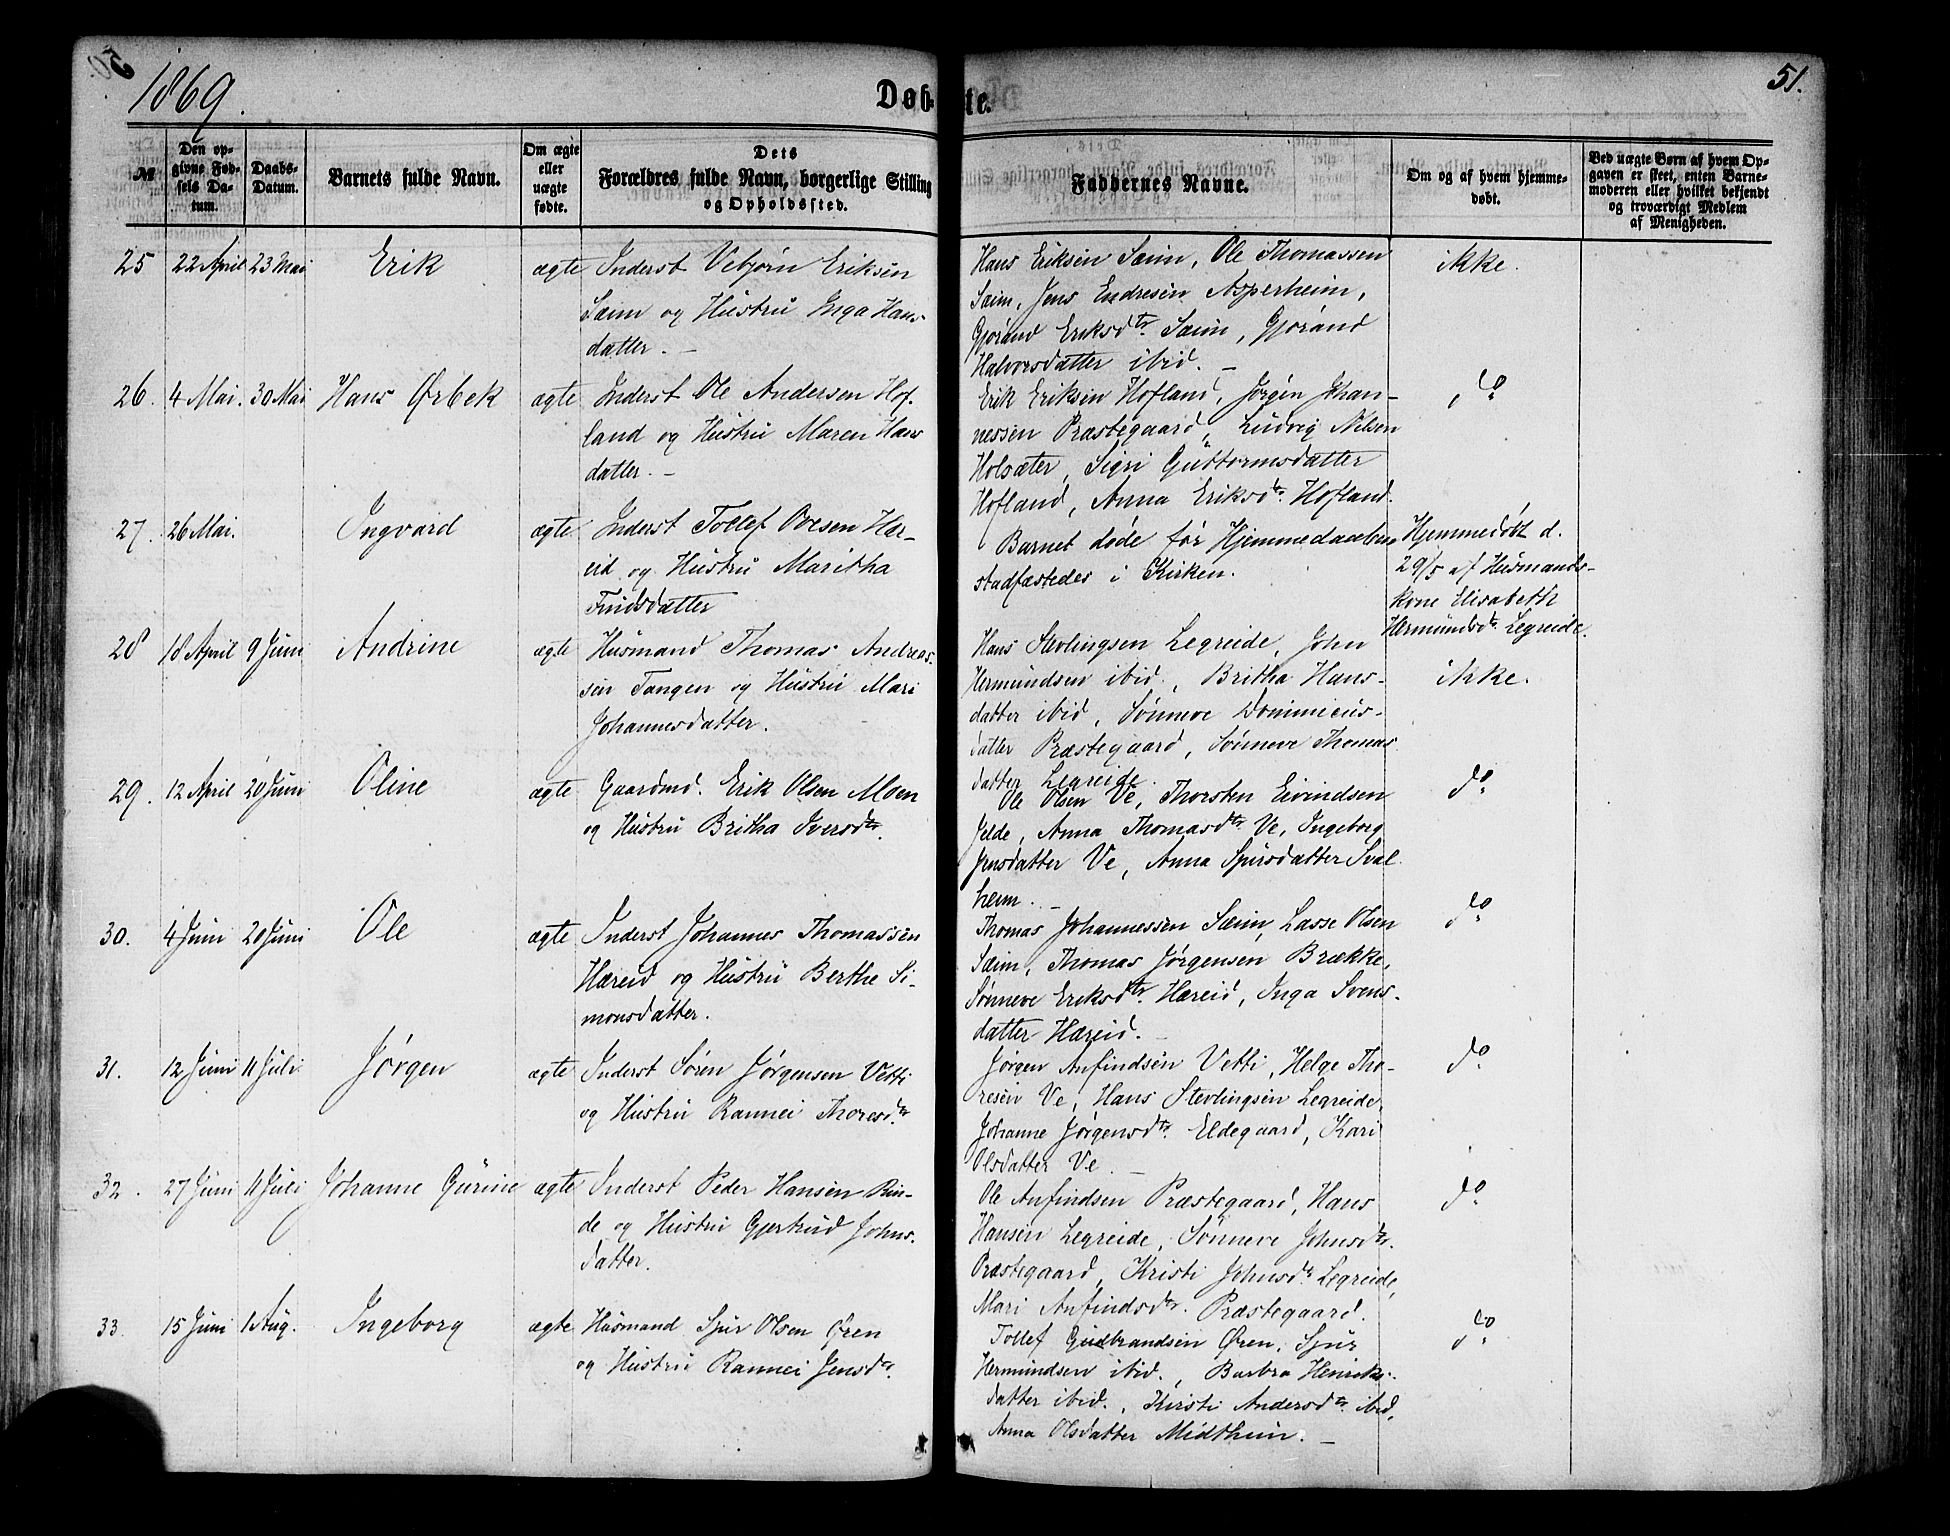 1869.
Døbte.
51.
№
Den opgivne Fødsels Datum.
Daabs-Datum.
Barnets fulde Navn.
Om ægte eller uægte fødte.
Dets Forældres fulde Navn, borgerlige Stilling og Opholdssted.
Faddernes Navne.
Om og af hvem hjemmedøbt.
Ved uægte Børn af hvem Opgaven er skeet, enten Barnemoderen eller hvilket bekjendt og troværdigt Medlem af Menigheden.
25 22 April 23 Mai Erik ægte Inderst Vebjørn Eriksen
Sæim og Hustru Inga Hans-
datter. –
Hans Eriksen Sæim, Ole Thomassen
Sæim, Jens Endresen Asperheim,
Gjørand Eriksdtr. Sæim, Gjørand
Halvorsdatter ibid. –
ikke.
26. 4 Mai. 30 Mai Hans Ørbek ægte Inderst Ole Andersen Hof-
land og Hustru Maren Hans
datter. –
Erik Eriksen Hofland, Jørgen Johan-
nessen Præstegaard, Ludvig Nilsen
Holsæter, Sigri Guttormsdatter
Hofland, Anna Eriksdtr. Hofland.
do
27. 26 Mai. Ingvard ægte Inderst Tollef Ovesen Hær-
eid og Hustru Maritha
Findsdatter
Barnet døde før Hjemmedaaben
stadfæstedes i Kirken.
Hjemmedøbt d.
29/5 af Husmands-
kone Elisabeth
Hermundsdtr. Legreide.
28 18 April 9 Juni Andrine ægte Husmand Thomas Andreas-
sen Tangen og Hustru Mari
Johannesdatter.
Hans Stevlingsen Legreide, John
Hermundsen ibid., Britha Hans-
datter ibid, Sønneve Dominicus-
datter Præstegaard, Sønneve Thomas
datter Legreide.
ikke.
29. 12 April 20 Juni Oline ægte Gaardmd. Erik Olsen Moen
og Hustru Britha Iversdtr.
Ole Olsen Ve, Thorsten Eivindsen
Jelde, Anna Thomasdtr. Ve, Ingeborg
Jensdatter Ve, Anna Spursdatter Sval-
heim. –
do
30. 4 Juni 20 Juni Ole ægte Inderst Johannes Thomassen
Hæreid og Hustru Berthe Si-
monsdatter.
Thomas Johannessen Sæim, Lasse Olsen
Sæim, Thomas Jørgensen Brække,
Sønneve Eriksdtr. Hæreid, Inga Svens-
datter Hæreid. –
do
31. 12 Juni 11 Juli Jørgen ægte Inderst Søren Jørgensen Vetti
og Hustru Rannei Thoresdtr.
Jørgen Anfindsen Vetti, Helge Tho-
resen Ve, Hans Stevlingsen Legreide,
Johanne Jørgensdtr. Eldegaard, Kari
Olsdatter Ve. –
do
32. 27 Juni 11 Juli Johanne Gurine ægte Inderst Peder Hansen Rin-
de og Hustru Gjertrud Johns-
datter.
Ole Anfindsen Præstegaard, Hans
Hansen Legreide, Sønneve Johnsdtr.
Præstegaard, Kristi Johnsdtr. Legreide,
Mari Anfindsdtr. Præstegaard.
do
33. 15 Juni 1 Aug. Ingeborg ægte Husmand Sjur Olsen Øren
og Hustru Rannei Jensdtr.
Tollef Gudbrandsen Øren, Sjur
Hermundsen ibid., Barbra Henriks-
datter ibid., Kirsti Andersdtr. ibid,
Anna Olsdatter Midthun. –
do